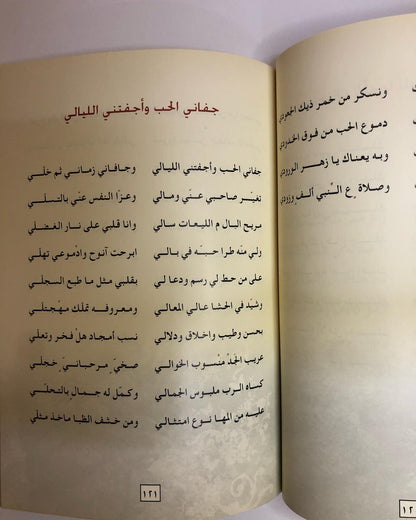 ونسكر من خمر ذيك الجعودي
دموع الحب من فوق الخدودي
وبه يعناك يا زهر الورودي
وصلاة ع النبي ألف وزودي
جفاني الحب وأجفتني الليالي
جفاني الحب وأجفتني الليالي وجافاني زماني ثم خلي
تغير صاحبي عني ومالي وعزا النفس عني بالتسلي
مريح البال م الليعات سالي وانا قلبي على نار الغضلي
ولي منه طرا حبه في بالي ابرحت آنوح وادموعي تهلي
على من حط لي رسم ودعا لي بقلبي مثل ما طبع السجلي
وشيد في الحشا عالي المعالي ومعروفه تملك مهجتلي
بحسن وطيب واخلاق ودلالي نسب أمجاد هل فخر وتعلي
عريب الجد منسوب الخوالي صخي مرحباني خجلي
كساه الرب ملبوس الجمالي وكمل له جمال بالتحلي
عليه من المها نوع امتثالي ومن خشف الظبا ماخذ مثلي
١٢١